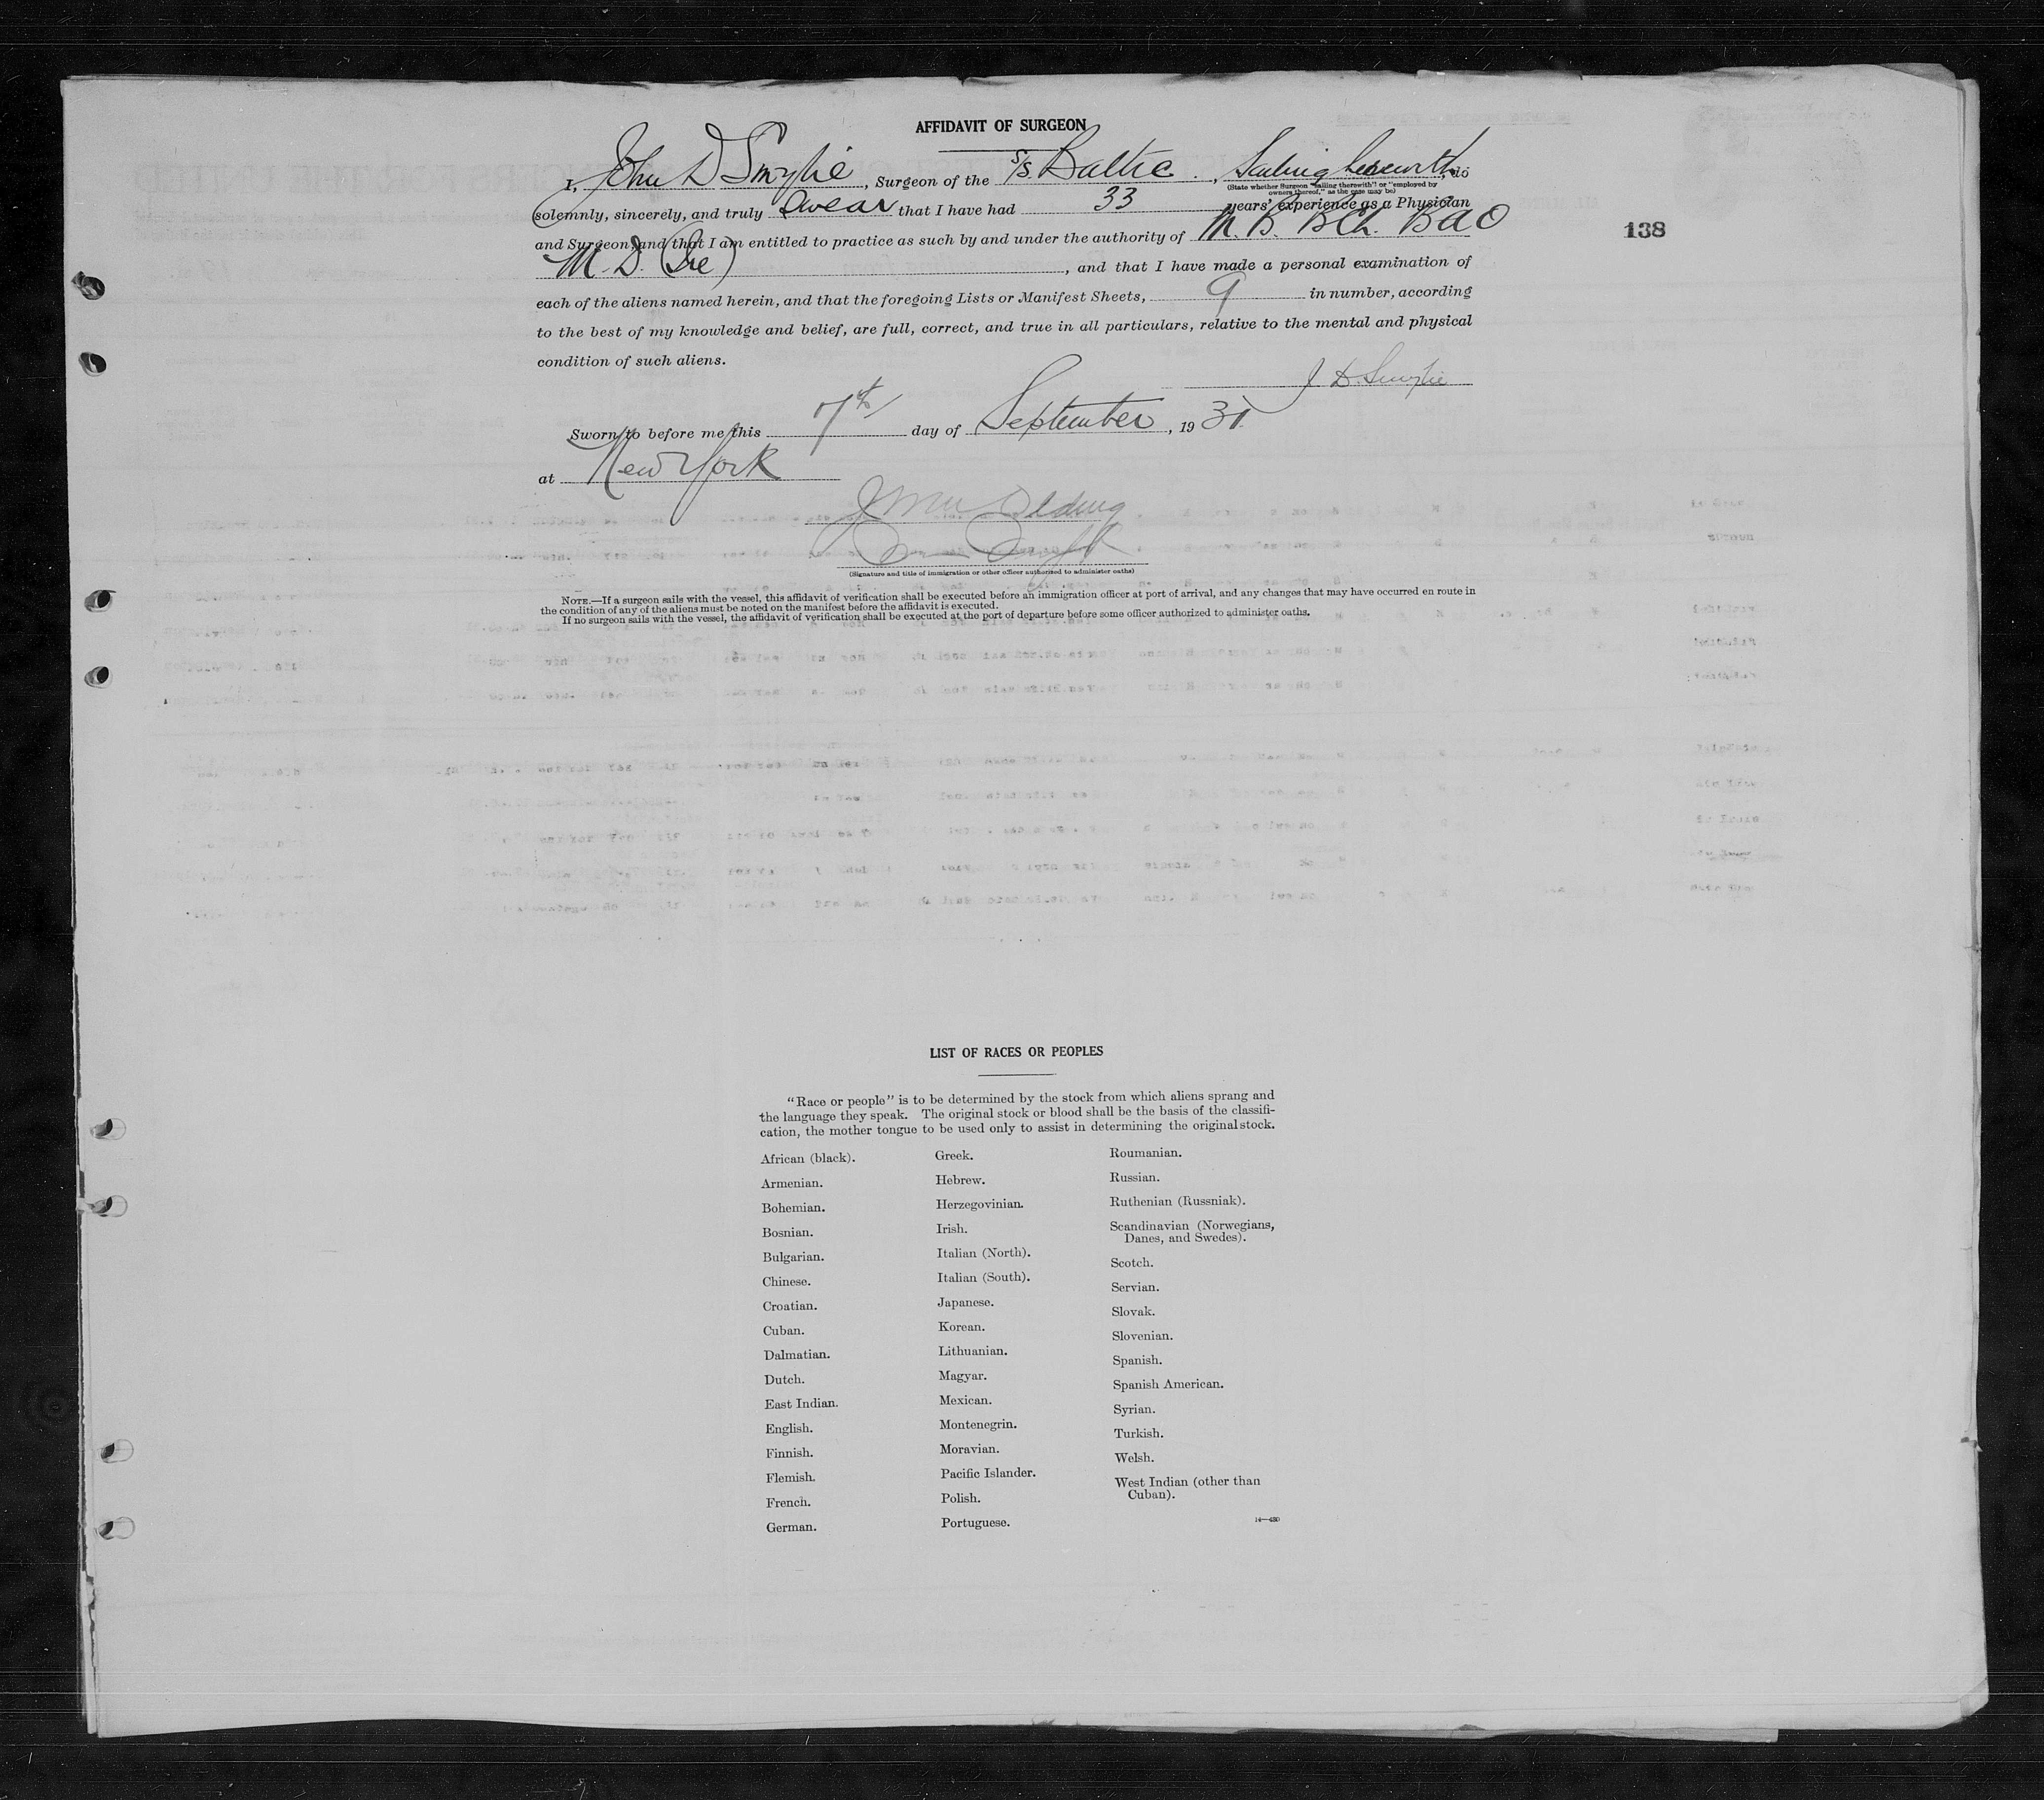 AFFIDAVIT OF SURGEON
I, John D Smylie, Surgeon of the S/S. Baltic, Sailing therewith, do
(State whether Surgeon "sailing therewith" or "employed by
owners thereof," as the case may be)
solemnly, sincerely, and truly swear that I have had 33 years' experience as a Physician
and Surgeon, and that I am entitled to practice as such by and under the authority of M. B. BCh. BAO
138
M. D. (Ire), and that I have made a personal examination of
each of the aliens named herein, and that the foregoing Lists or Manifest Sheets, 9 in number, according
to the best of my knowledge and belief, are full, correct, and true in all particulars, relative to the mental and physical
condition of such aliens.
J D. Smylie
Sworn to before me this 7th day of September, 1931
at New York
(Signature and title of immigration or other officer authorized to administer oaths)
NOTE.—If a surgeon sails with the vessel, this affidavit of verification shall be executed before an immigration officer at port of arrival, and any changes that may have occurred en route in
the condition of any of the aliens must be noted on the manifest before the affidavit is executed.
If no surgeon sails with the vessel, the affidavit of verification shall be executed at the port of departure before some officer authorized to administer oaths.
LIST OF RACES OR PEOPLES
"Race or people" is to be determined by the stock from which aliens sprang and
the language they speak. The original stock or blood shall be the basis of the classifi-
cation, the mother tongue to be used only to assist in determining the original stock.
African (black).
Armenian.
Bohemian.
Bosnian.
Bulgarian.
Chinese.
Croatian.
Cuban.
Dalmatian.
Dutch.
East Indian.
English.
Finnish.
Flemish.
French.
German.
Greek.
Hebrew.
Herzegovinian.
Irish.
Italian (North).
Italian (South).
Japanese.
Korean.
Lithuanian.
Magyar.
Mexican.
Montenegrin.
Moravian.
Pacific Islander.
Polish.
Portuguese.
Roumanian.
Russian.
Ruthenian (Russniak).
Scandinavian (Norwegians,
Danes, and Swedes).
Scotch.
Servian.
Slovak.
Slovenian.
Spanish.
Spanish American.
Syrian.
Turkish.
Welsh.
West Indian (other than
Cuban).